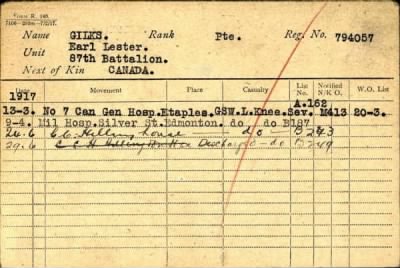 Form R. 140.
Name GILKS. Rank Pte. Reg. No. 794057
Earl Lester.
Unit 87th Battalion.
Next of Kin CANADA.
Date Movement Place Casualty List No. Notified N/K O. W.O. List
1917
A.162
13-3. No 7 Can Gen Hosp. Etaples. GSW.L.Knee. Sev. M413 20-3.
9-4. Mil Hosp. Silver St. Edmonton. do do B187
26.6 C.C. Hillingdon House — do — B243
29.6 C C H Hillingdon Hse Discharged — do B249